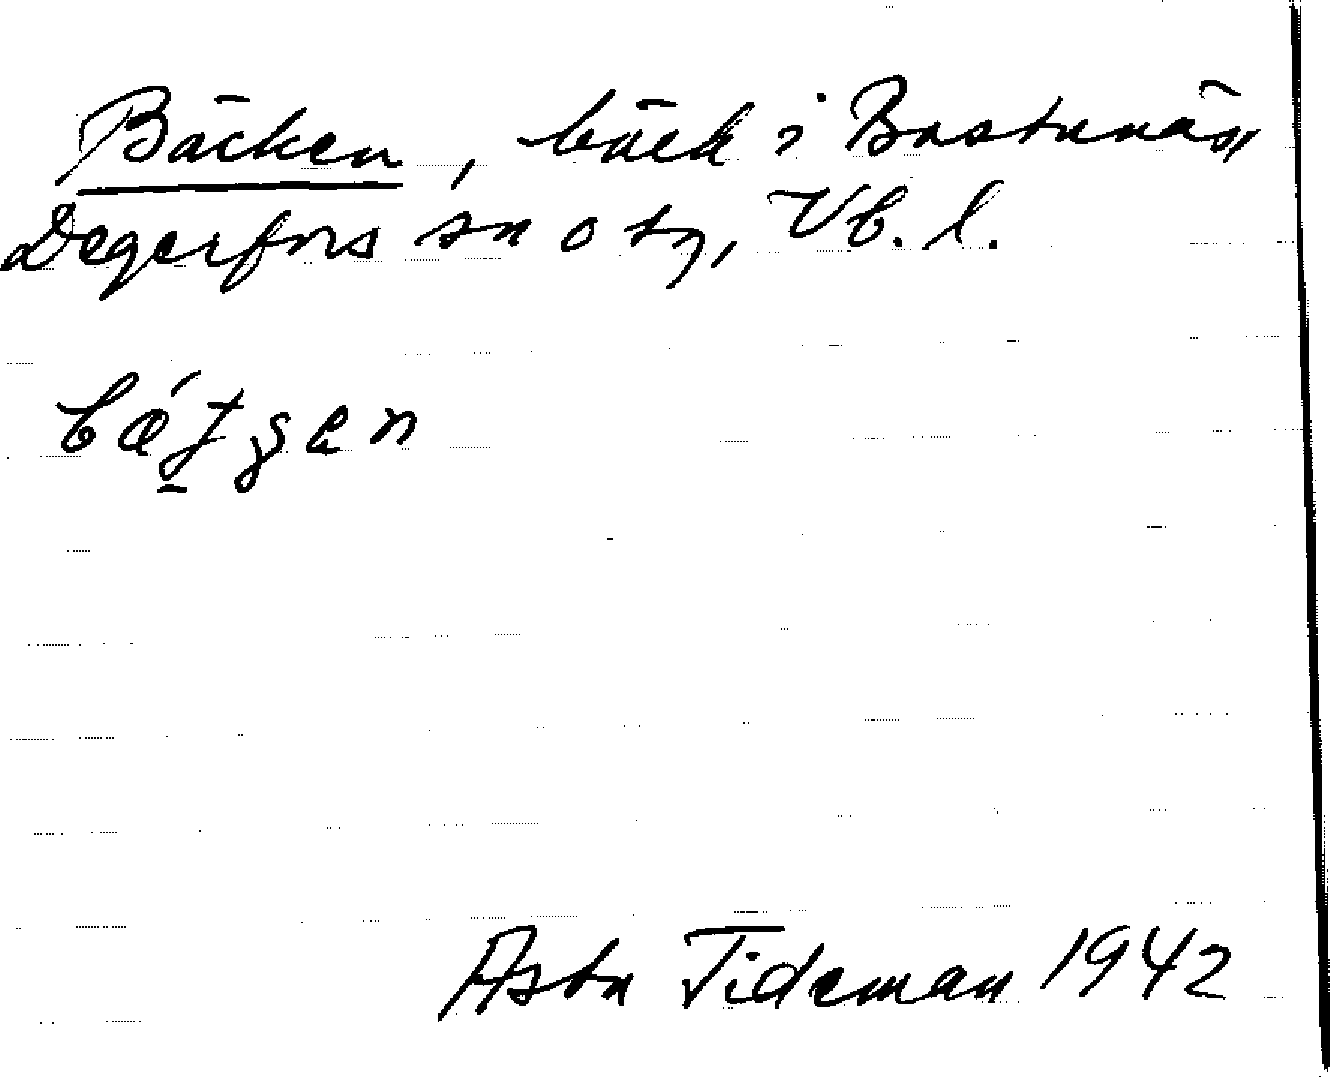 Bäcken, bäck i Bastunäs,
Degerfors sn o tg, Vb. l.
Asta Tideman 1942